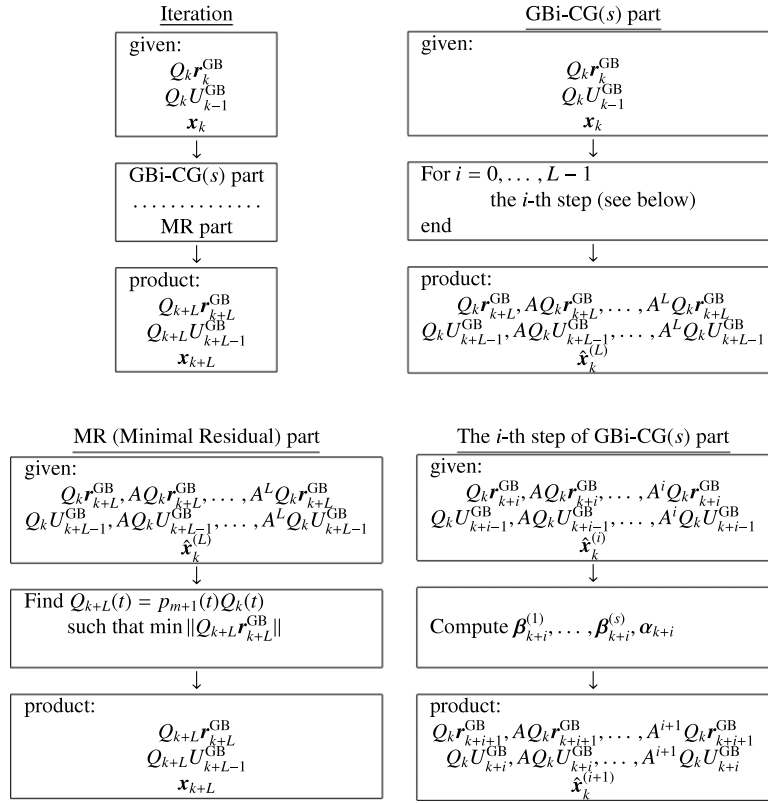 Iteration
given:
Q_k r_k^GB
Q_k U_{k-1}^GB
x_k
↓
GBi-CG(s) part
. . . . . . . . . . . . . .
MR part
↓
product:
Q_{k+L} r_{k+L}^GB
Q_{k+L} U_{k+L-1}^GB
x_{k+L}
GBi-CG(s) part
given:
Q_k r_k^GB
Q_k U_{k-1}^GB
x_k
↓
For i = 0, . . . , L − 1
the i-th step (see below)
end
↓
product:
Q_k r_{k+L}^GB, AQ_k r_{k+L}^GB, . . . , A^L Q_k r_{k+L}^GB
Q_k U_{k+L-1}^GB, AQ_k U_{k+L-1}^GB, . . . , A^L Q_k U_{k+L-1}^GB
x̂_k^(L)
MR (Minimal Residual) part
given:
Q_k r_{k+L}^GB, AQ_k r_{k+L}^GB, . . . , A^L Q_k r_{k+L}^GB
Q_k U_{k+L-1}^GB, AQ_k U_{k+L-1}^GB, . . . , A^L Q_k U_{k+L-1}^GB
x̂_k^(L)
↓
Find Q_{k+L}(t) = p_{m+1}(t)Q_k(t)
such that min ||Q_{k+L} r_{k+L}^GB||
↓
product:
Q_{k+L} r_{k+L}^GB
Q_{k+L} U_{k+L-1}^GB
x_{k+L}
The i-th step of GBi-CG(s) part
given:
Q_k r_{k+i}^GB, AQ_k r_{k+i}^GB, . . . , A^i Q_k r_{k+i}^GB
Q_k U_{k+i-1}^GB, AQ_k U_{k+i-1}^GB, . . . , A^i Q_k U_{k+i-1}^GB
x̂_k^(i)
↓
Compute β_{k+i}^(1), . . . , β_{k+i}^(s), α_{k+i}
↓
product:
Q_k r_{k+i+1}^GB, AQ_k r_{k+i+1}^GB, . . . , A^{i+1} Q_k r_{k+i+1}^GB
Q_k U_{k+i}^GB, AQ_k U_{k+i}^GB, . . . , A^{i+1} Q_k U_{k+i}^GB
x̂_k^(i+1)